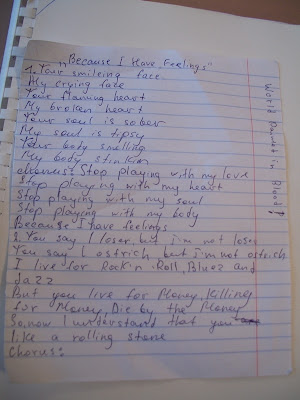 "Because I Have Feelings"
1. Your smileing face
My crying face
Your flaming heart
My broken heart
Your soul is sober
My soul is tipsy
Your body smelling
My body stinkin
chorus: Stop playing with my love
Stop playing with my heart
Stop playing with my soul
Stop playing with my body
Because I have feelings
2. You say I loser, but i'm not loser
You say I ostrich but i'm not ostrich
I live for Rock'n-Roll, Bluez and
Jazz
But you live for Money, Killing
for Money, Die by the Money
So, now I understand that you
like a rolling stone
Chorus:
World in Blood!